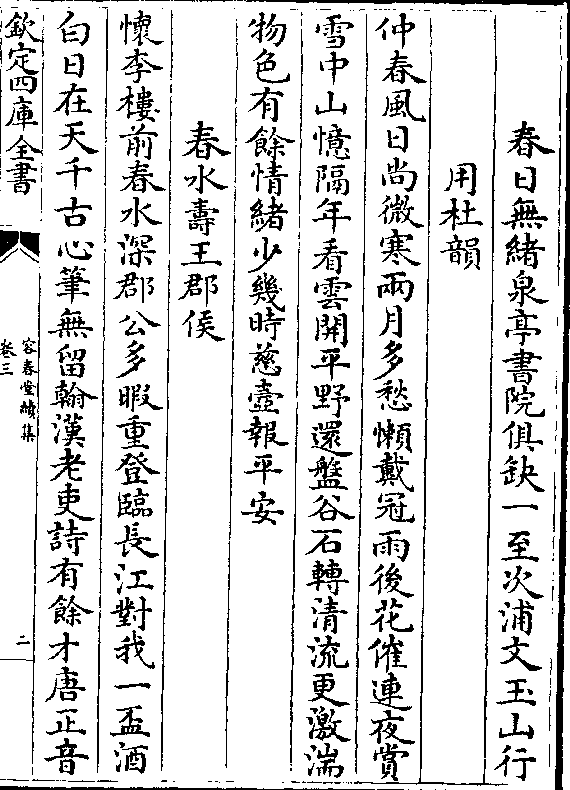 春日無緒泉亭書院俱缺一至次浦文玉山行
用杜韻
仲春風日尚微寒兩月多愁懶戴冠雨後花催連夜賞
雪中山憶隔年看雲開平野還盤谷石轉清流更激湍
物色有餘情緒少幾時慈壼報平安
春水壽王郡侯
懷李樓前春水深郡公多暇重登臨長江對我一盃酒
白日在天千古心筆無留翰漢老吏詩有餘才唐正音
欽定四庫全書
容春堂續集
卷三
二